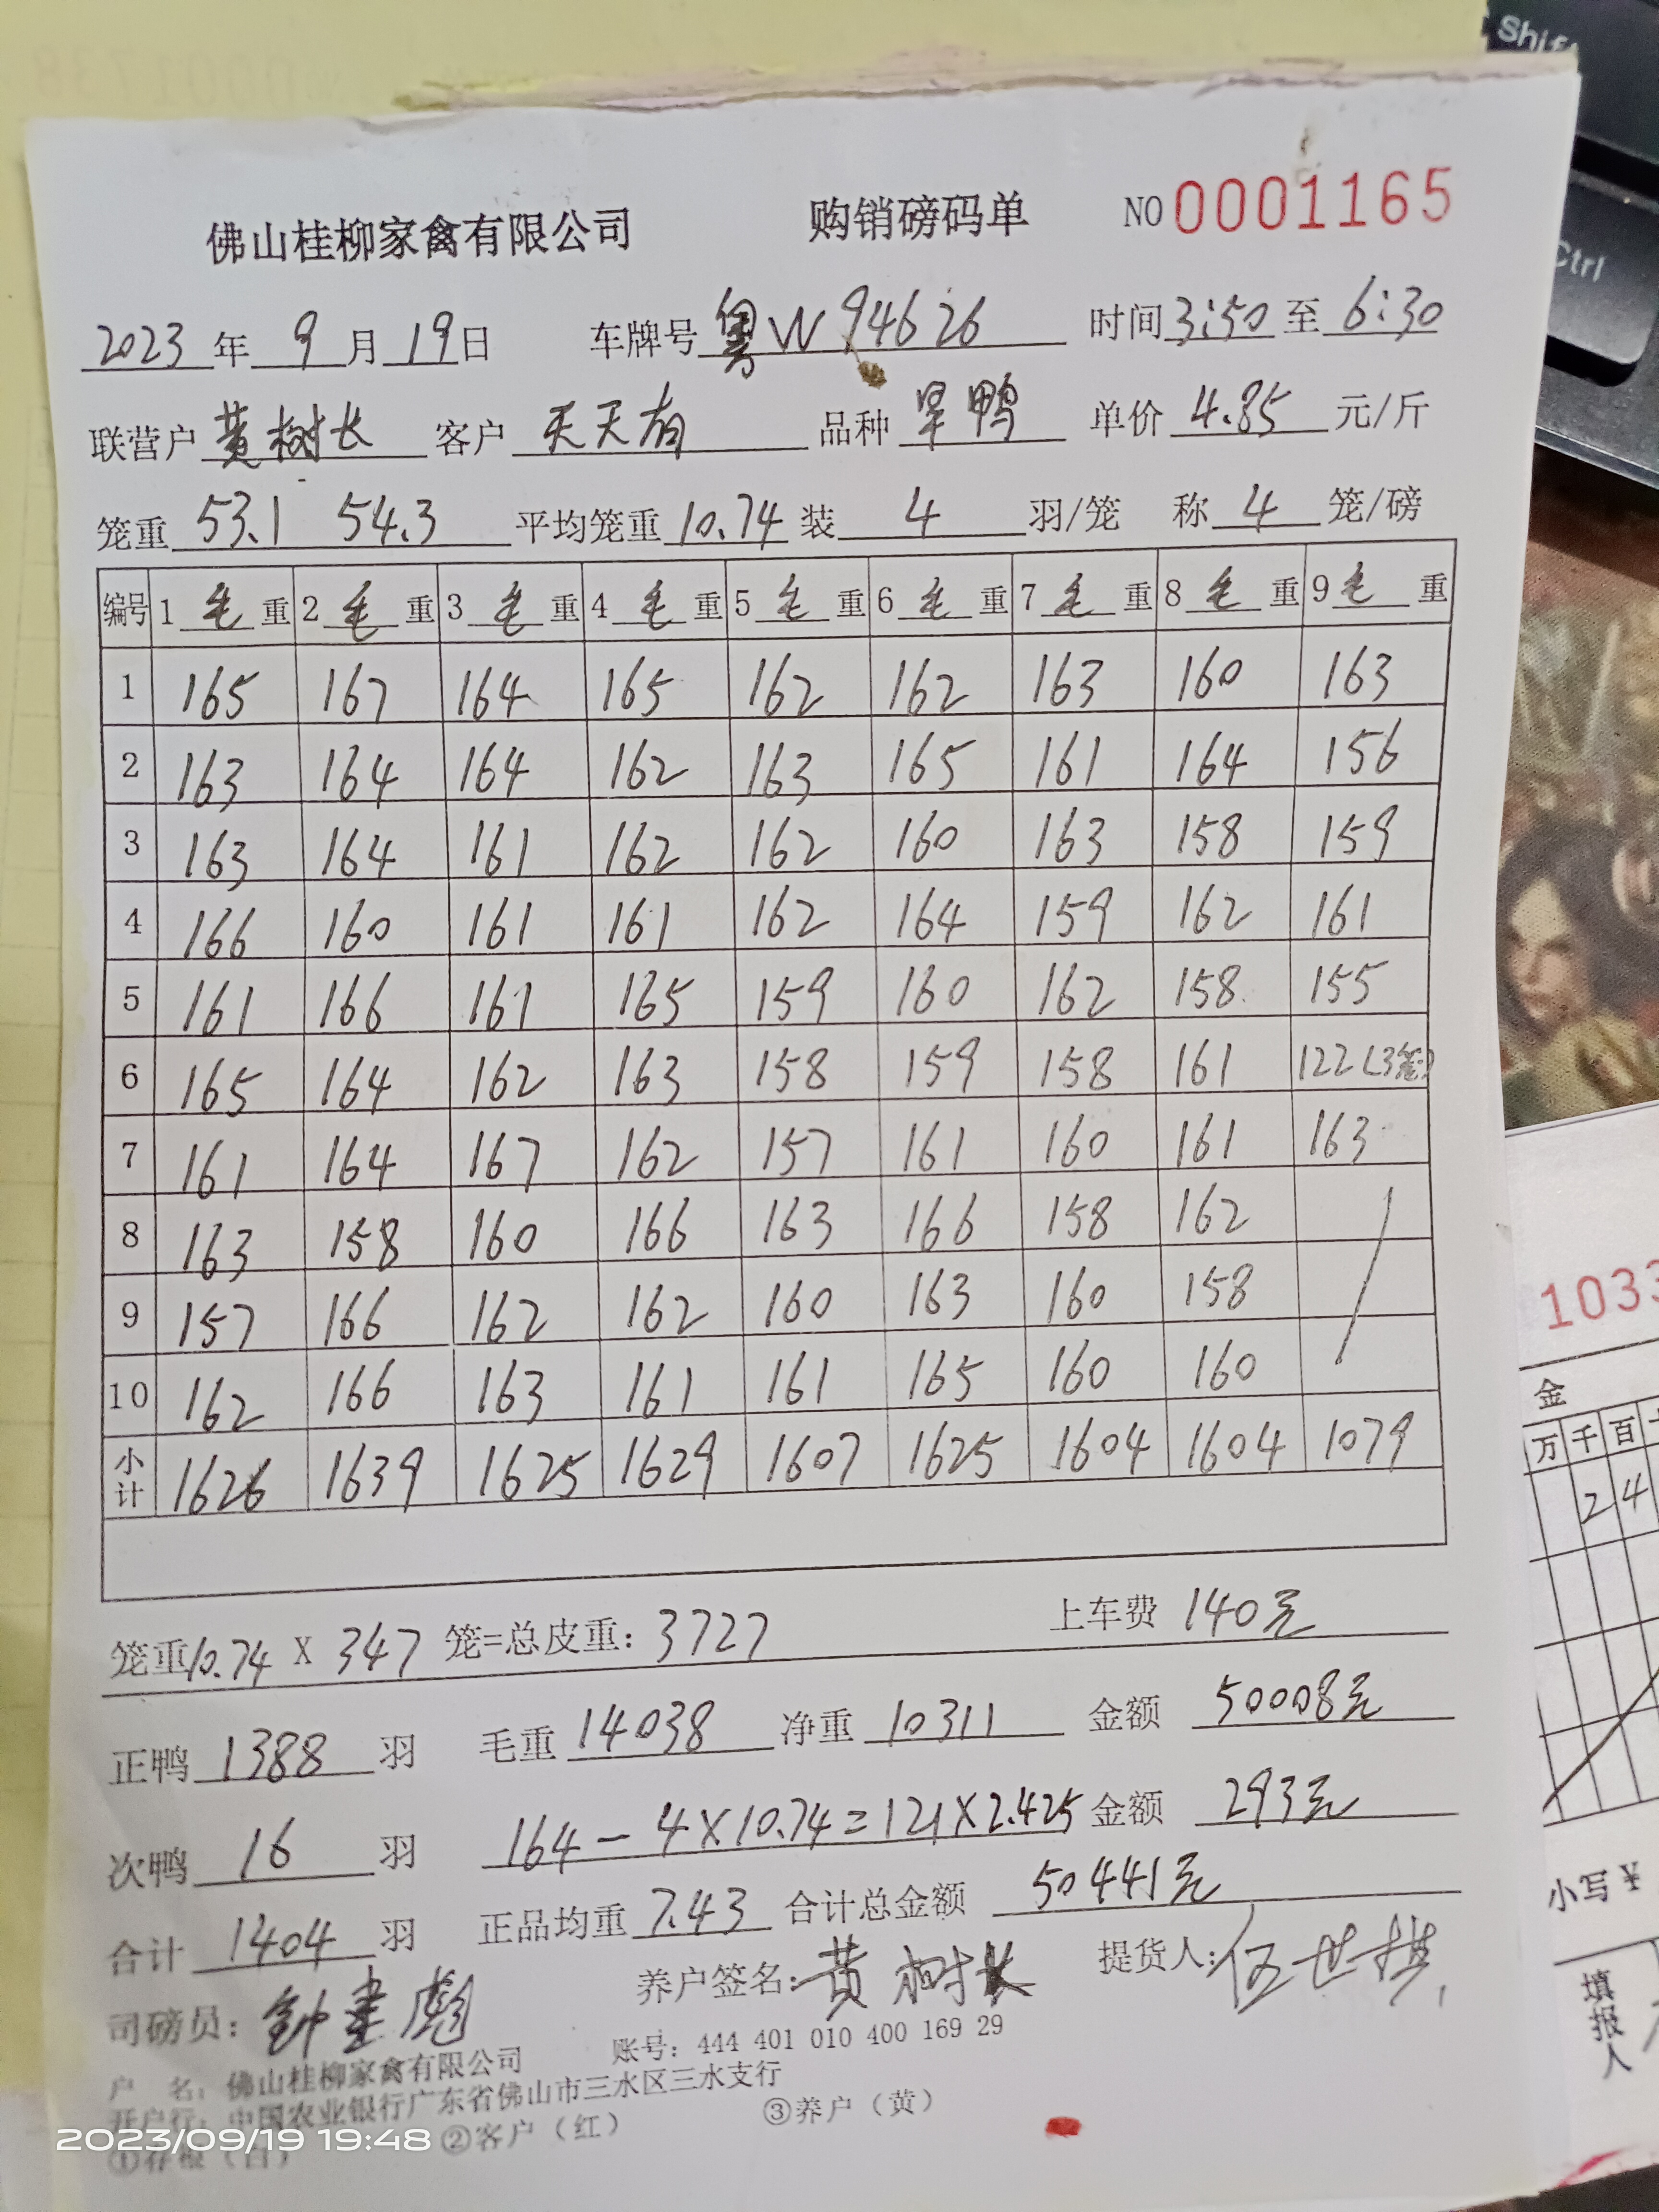 Shift
Ctrl
佛山桂柳家禽有限公司 购销磅码单 NO 0001165
2023年9月19日 车牌号粤W94626 时间3:50至6:30
联营户黄树长 客户天天有 品种旱鸭 单价4.85元/斤
笼重53.1 54.3 平均笼重10.74装4羽/笼 称4笼/磅
编号 1毛重 2毛重 3毛重 4毛重 5毛重 6毛重 7毛重 8毛重 9毛重
1 165 167 164 165 162 162 163 160 163
2 163 164 164 162 163 165 161 164 156
3 163 164 161 162 162 160 163 158 159
4 166 160 161 161 162 164 159 162 161
5 161 166 161 165 159 160 162 158 155
6 165 164 162 163 158 159 158 161 122(3笼)
7 161 164 167 162 157 161 160 161 163
8 163 158 160 166 163 166 158 162
9 157 166 162 162 160 163 160 158
10 162 166 163 161 161 165 160 160
小计 1626 1639 1625 1629 1607 1625 1604 1604 1079
笼重10.74 X 347 笼=总皮重：3727 上车费 140元
正鸭1388羽 毛重14038 净重10311 金额 50008元
次鸭16羽 164-4×10.74=121×2.425 金额 293元
合计1404羽 正品均重7.43 合计总金额 50441元
司磅员：钟 彪 养户签名：黄树长 提货人：伍世棋
户 名：佛山桂柳家禽有限公司 账号：444 401 010 400 169 29
开户行：中国农业银行广东省佛山市三水区三水支行
①存根（白） ②客户（红） ③养户（黄）
2023/09/19 19:48
1033
金
万 千 百
2 4
小写￥
填报人